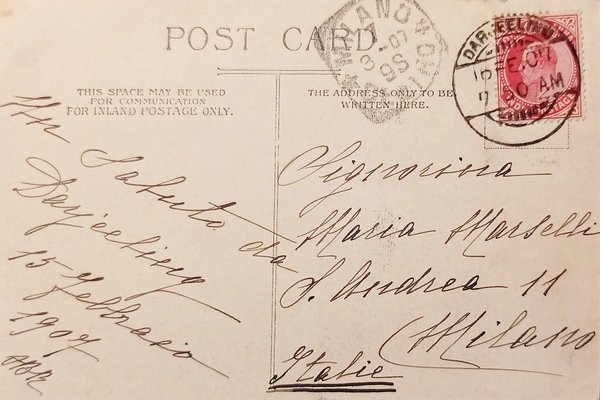 POST CARD
THIS SPACE MAY BE USED
FOR COMMUNICATION
FOR INLAND POSTAGE ONLY.
THE ADDRESS ONLY TO BE
WRITTEN HERE.
MILANO
8-07
9S
DARJEELING
16 FE 07
7 0 AM
Un
Saluto da
Darjeeling
15 Febbraio
1907
Signorina
Maria Marselli
S. Andrea 11
Milano
Italie